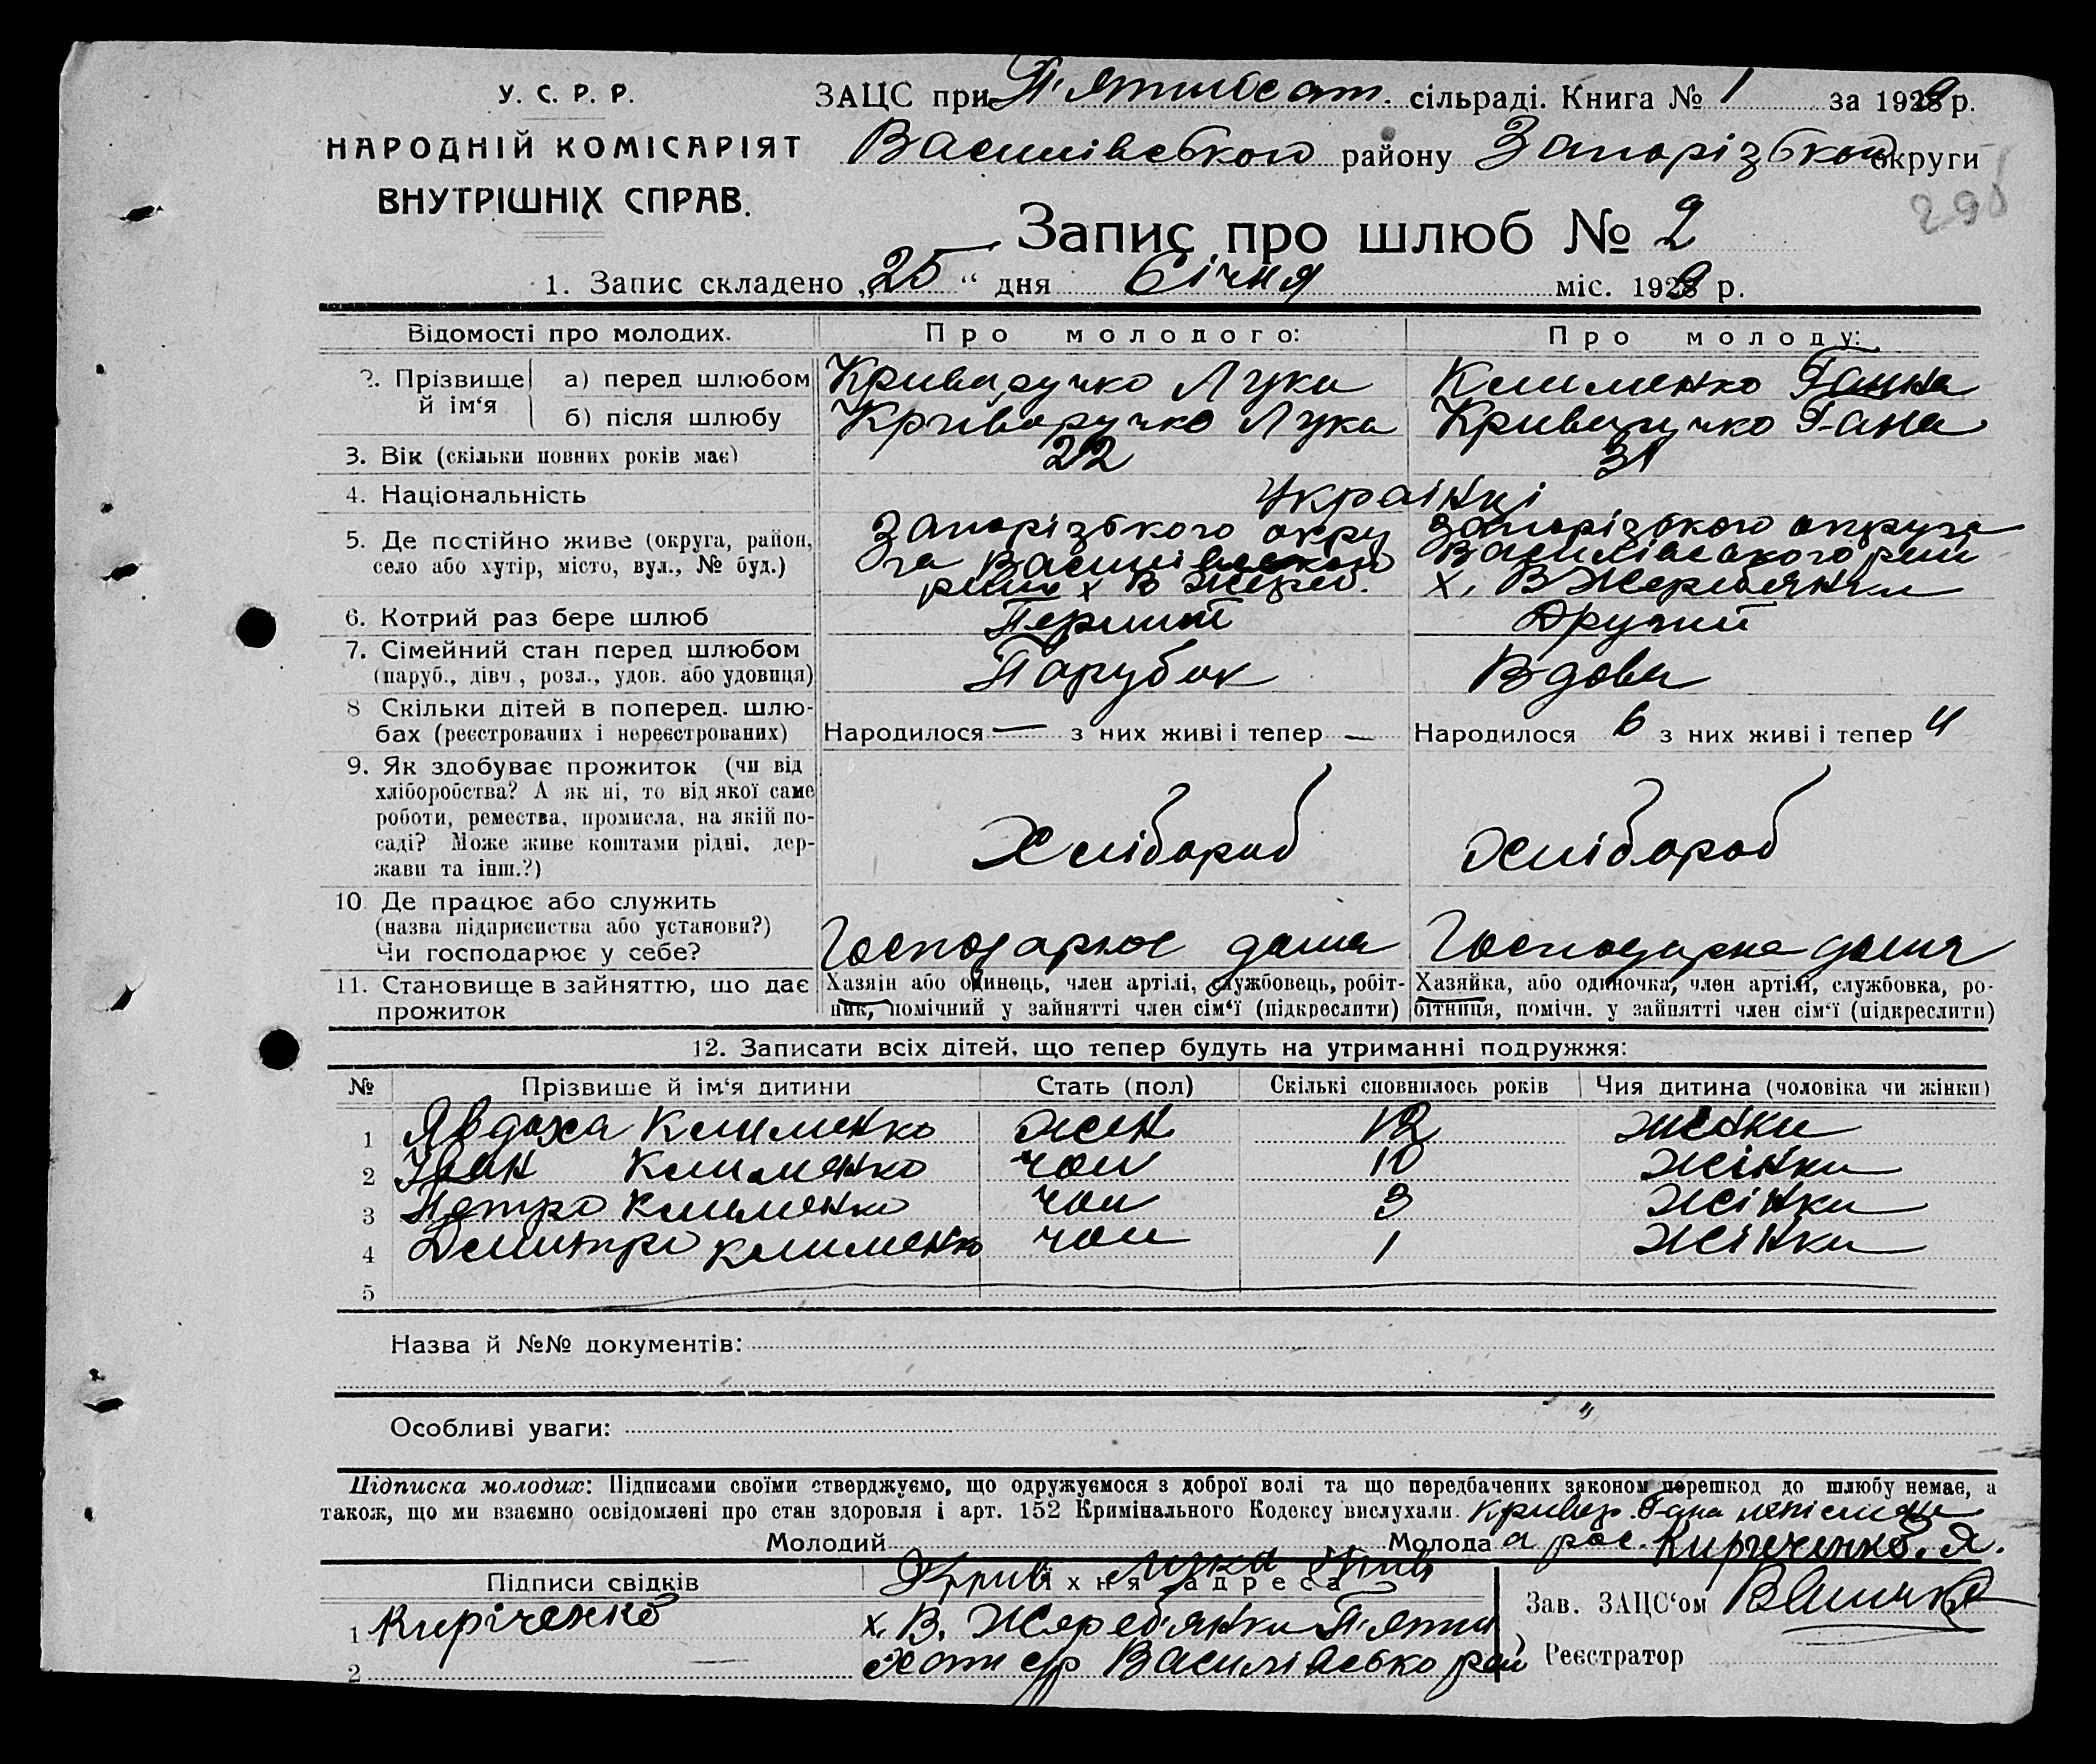 У. С. Р. Р.
НАРОДНІЙ КОМІСАРІЯТ
ВНУТРІШНІХ СПРАВ.
ЗАЦС при П'ятихат. сільраді. Книга № 1 за 1929 р.
Василівського району Запорізької округи
295
Запис про шлюб № 2
1. Запис складено „25“ дня Січня міс. 1929 р.
Відомості про молодих. Про молодого: Про молоду:
2. Прізвище й ім‘я а) перед шлюбом Криворучко Лука Клименко Ганна
б) після шлюбу Криворучко Лука Криворучко Гана
3. Вік (скільки повних років має) 22 31
4. Національність Українці
5. Де постійно живе (округа, район, село або хутір, місто, вул., № буд.)
Запорізького окру
га Василівської
х В Жереб.
Запорізького округа
Василівського рай
х. В Жереб'янки
6. Котрий раз бере шлюб Перший Другий
7. Сімейний стан перед шлюбом Парубок Вдова
(паруб., дівч., розл., удов. або удовиця)
8 Скільки дітей в поперед. шлю-
бах (реєстрованих і нереєстрованих) Народилося — з них живі і тепер — Народилося 6 з них живі і тепер 4
9. Як здобуває прожиток (чи від
хліборобства? А як ні, то від якої саме
роботи, ремества, промисла, на якій по-
саді? Може живе коштами рідні, дер-
жави та інш.?)
Хлібороб Хлібороб
10. Де працює або служить
(назва підприємства або установи?)
Чи господарює у себе? Господарює дома Господарка дома
11. Становище в зайняттю, що дає
прожиток
Хазяїн або одинець, член артілі, службовець, робіт-
ник, помічний у зайнятті член сім‘ї (підкреслити)
Хазяйка, або одиночка, член артілі, службовка, ро-
бітниця, помічн. у зайнятті член сім‘ї (підкреслити)
12. Записати всіх дітей, що тепер будуть на утриманні подружжя:
№ Прізвище й ім‘я дитини Стать (пол) Скількі сповнилось років Чия дитина (чоловіка чи жінки)
1 Явдоха Клименко жен 12 жінки
2 Іван Клименко чол 10 жінки
3 Петро Клименко чол 3 жінки
4 Демитро Клименко чол 1 жінки
5
Назва й №№ документів:
Особливі уваги:
Підписка молодих: Підписами своїми стверджуємо, що одружуємося з доброї волі та що передбачених законом перешкод до шлюбу немає, а
також, що ми взаємно освідомлені про стан здоровля і арт. 152 Кримінального Кодексу вислухали. Кривор. Гана
Молодий Молода а рос. Кириченко. Я.
Лука
Підписи свідків їхня адреса
1 Кириченко х. В. Жереб'янки П'яти
2 хатн с/р Василівсько рай
Зав. ЗАЦС‘ом
Реєстратор